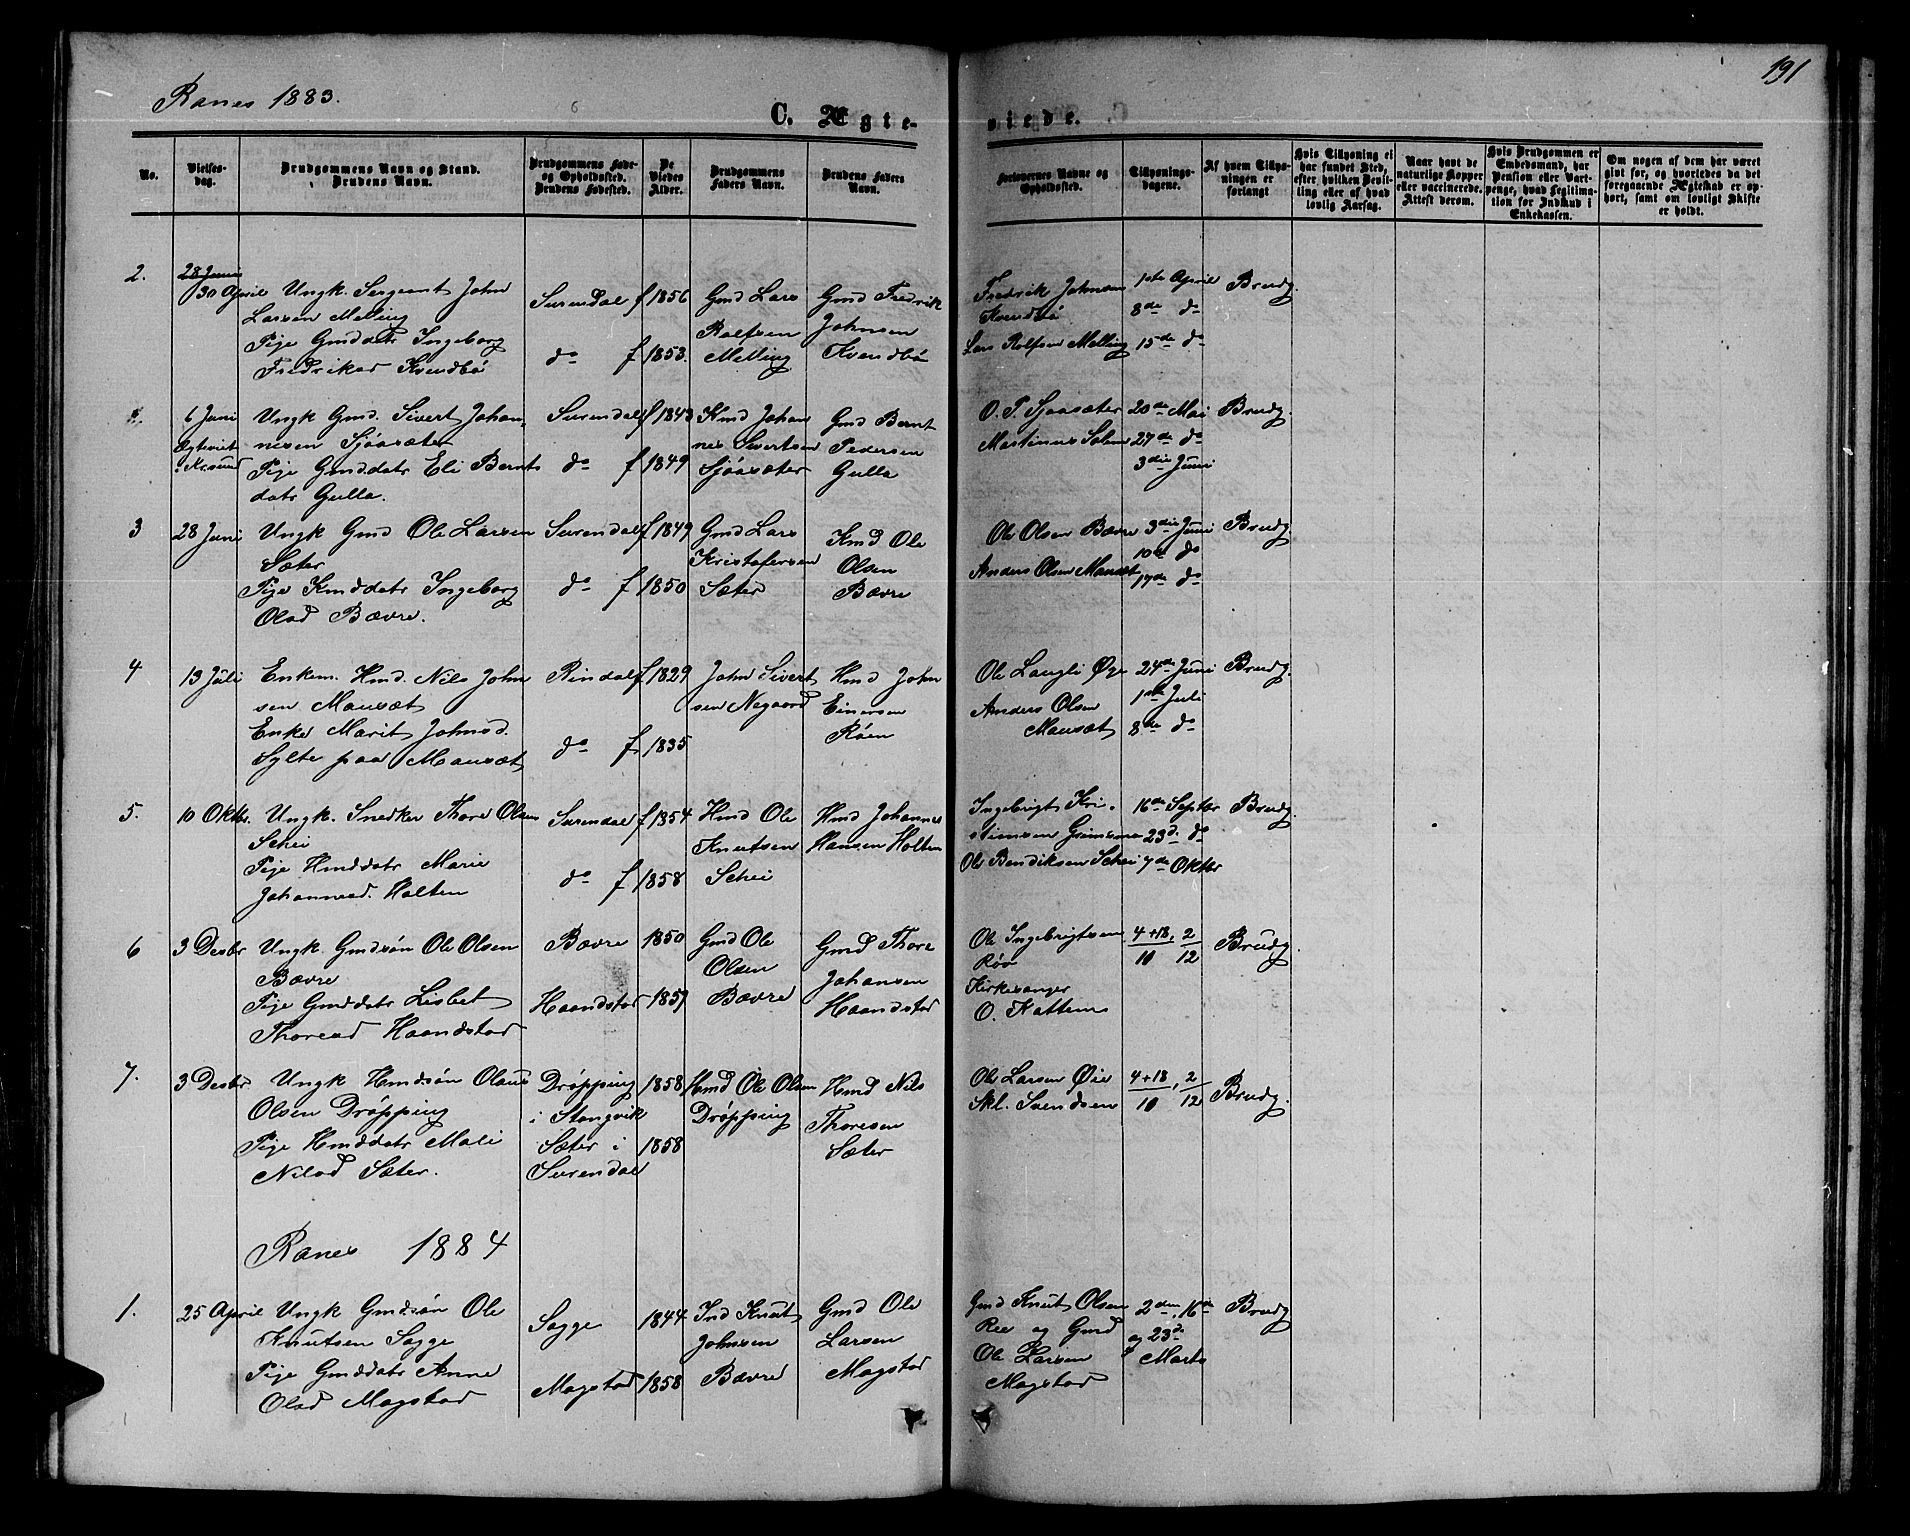 191
Ranes 1883.
C. Ægte-
viede.
No.
Vielses-
dag.
Brudgommens Navn og Stand.
Brudens Navn.
Brudgommens Føde-
og Opholdssted.
Brudens Fødested.
De
Viedes
Alder.
Brudgommens
Faders Navn.
Brudens Faders
Navn.
Forlovernes Navne og
Opholdssted.
Tillysnings-
dagene.
Af hvem Tillys-
ningen er
forlangt
Hvis Tillysning ei
har fundet Sted,
efter hvilken Bevil-
ling eller af hvad
lovlig Aarsag.
Naar havt de
naturlige Kopper
eller vaccinerede.
Attest derom.
Hvis Brudgommen er
Embedsmand, har
Pension eller Vart-
penge, hvad Legitima-
tion for Indskud i
Enkekassen.
Om nogen af dem har været
gift før, og hvorledes da det
foregaaende Ægteskab er op-
hørt, samt om lovligt Skifte
er holdt.
2.
28 Juni
30 April
Ungk. Sergeant John
Larsen Melling
Pige Gmddatr Ingeborg
Fredriksd Kvendbö
Surendal f 1856
do f 1853.
Gmd Lars
Rolfsen
Melling
Gmd Fredrik
Johnsen
Kvendbö
Fredrik Johnsen
Kvendbö
Lars Rolfsen Melling
1ste April
8de do
15de do
Brudg.
6 Juni
Ungk Gmd. Sivert Johan
nesen Sjöasæter
Pige Gmddatr Eli Bernts
datr Gulla.
Surendal f 1843
do f 1849
Kmd Johan
nes Sivertsen
Sjöasæter
Gmd Bernt
Pedersen
Gulla
O. P. Sjöasæter
Martinus Solem
20de Mai
27de do
3die Juni
Brudg.
3
28 Juni
Ungk Gmd Ole Larsen
Sæter
Pige Kmddatr Ingeborg
Olsd Bævre.
Surendal f 1849
do f 1850
Gmd Lars
Kristofersen
Sæter
Kmd Ole
Olsen
Bævre
Ole Olsen Bævre
Anders Olsen Mausæt
3die Juni
10de do
17de do
Brudg
4
13 Juli
Enkem. Hmd. Nils John
sen Mausæt
Enke Marit Johnsd.
Sylte paa Mausæt
Rindal f 1829
do f 1835
John Sivert
sen Negaard
Hmd John
Einersen
Röen
Ole Langli Øye
Anders Olsen
Mausæt
24de Juni
1ste Juli
8de do
Brudg.
5.
10 Oktbr.
Ungk. Snedker Thore Olsen
Schei
Pige Hmddatr Marie
Johannesd. Holten
Surendal f 1854
do f 1858
Hmd Ole
Knutsen
Schei
Hmd Johannes
Hansen Holten
Ingebrigt Kri-
stiansen Grimsmo
Ole Bendiksen Schei
16de Septbr
23d. do
7de Oktbr
Brudg.
6
3 Desbr
Ungk. Gmdsön Ole Olsen
Bævre
Pige Gmddatr Lisbet
Thoresd Haandstad
Bævre 1850
Haandstad 1857
Gmd Ole
Olsen
Bævre
Gmd Thore
Johansen
Haandstad
Ole Ingebrigtsen
Röv
Kirkesanger
O. Kattem
4+18, 2
10 12
Brudg.
7.
3 Desbr
Ungk Hmdsön Olaus
Olsen Dröpping
Pige Hmddatr Mali
Nilsd Sæter.
Dröpping 1858
i Stangvik
Sæter i 1858
Surendal
Hmd Ole Olsen
Dröpping
Hmd Nils
Thoresen
Sæter
Ole Larsen Øie
Skl. Svendsen
4+18, 2
10 12
Brudg.
Ranes 1884
1.
25 April
Ungk Gmdsön Ole
Knutsen Sogge
Pige Gmddatr Anne
Olsd Mogstad
Sogge 1844
Mogstad 1858
Ind Knut
Johnsen
Bævre
Gmd Ole
Larsen
Mogstad
Gmd Knut Olsen
og Gmd
Ole Larsen
Mogstad
2den, 16de
og 23d.
Marts
Brudg